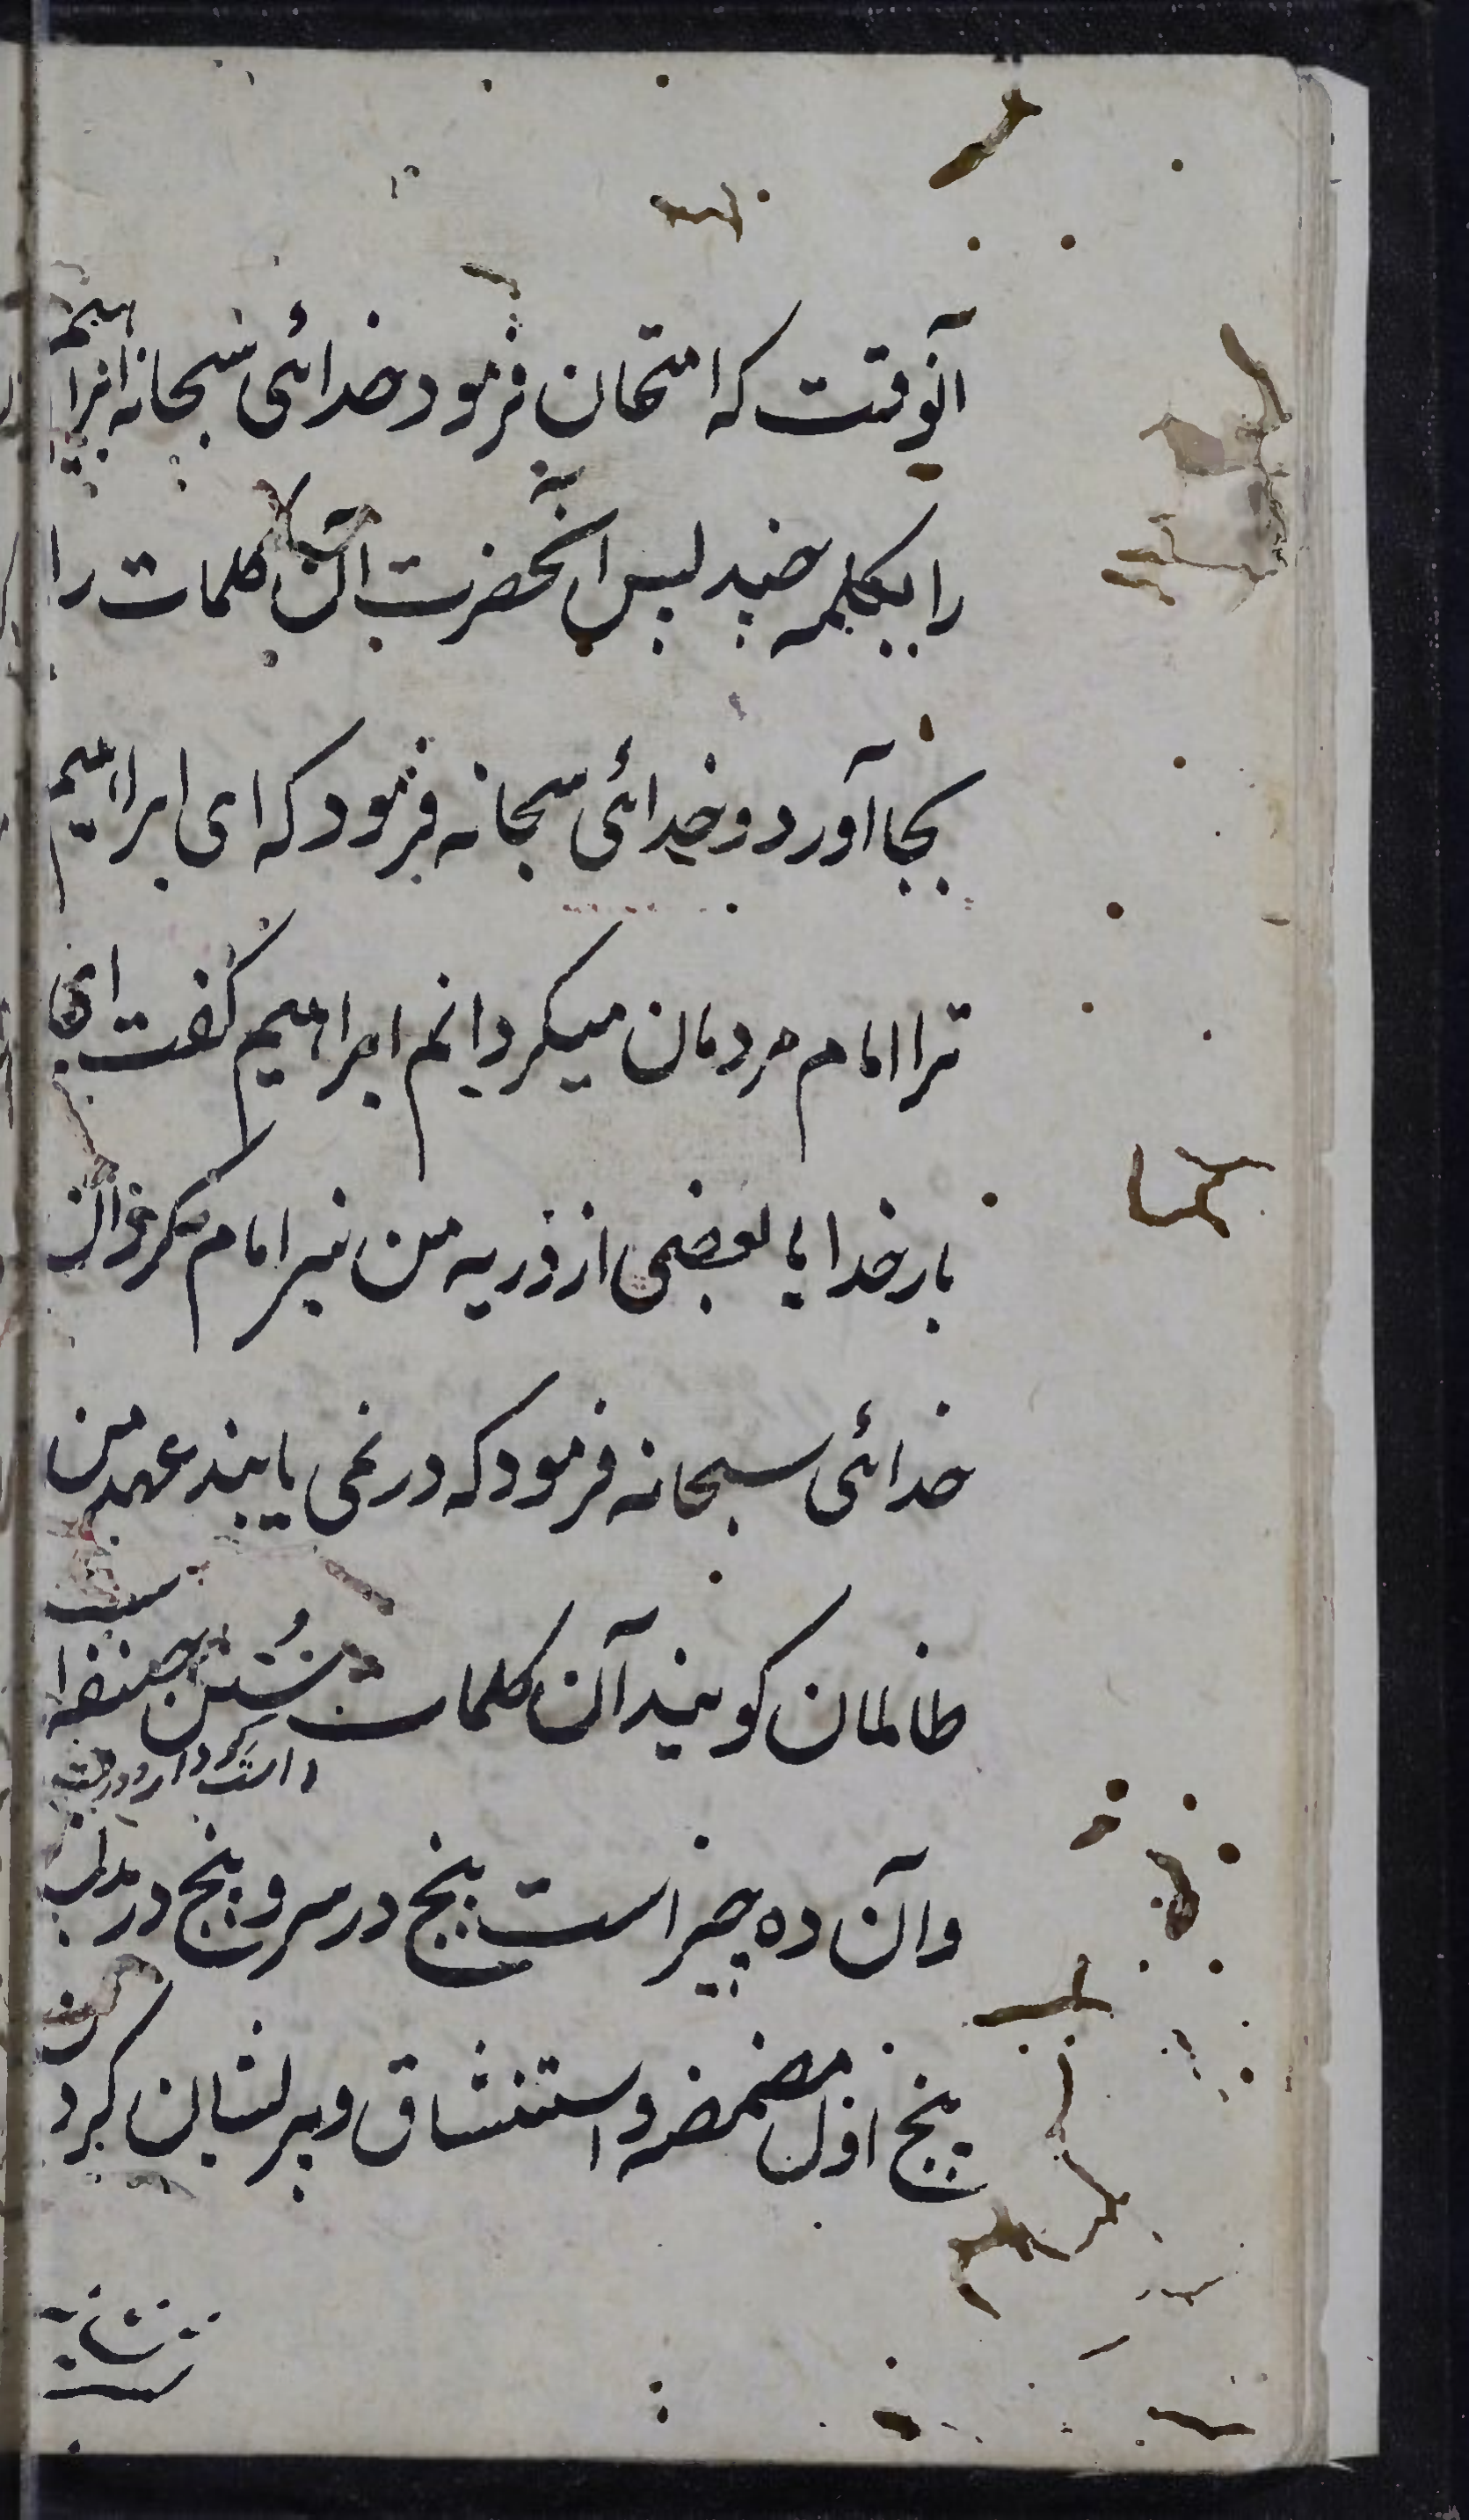 آنوقت که امتحان فرمود خدائی سبحانه ابراهیم
را بکلمه چند پس آنحضرت آن کلمات را
بجا آورد و خدائی سبحانه فرمود که ای ابراهیم
ترا امام مردمان میکردانم ابراهیم گفت ای
بارخدایا بعضی از ذریه من نیز امام
خدائی سبحانه فرمود که در نمی یابند عهد من
ظالمان کویند آن کلمات سُنن
وآن ده چیز است پنج در سر و پنج در بدن
پنج اول مضمضه و استنشاق و پرلشان کردن